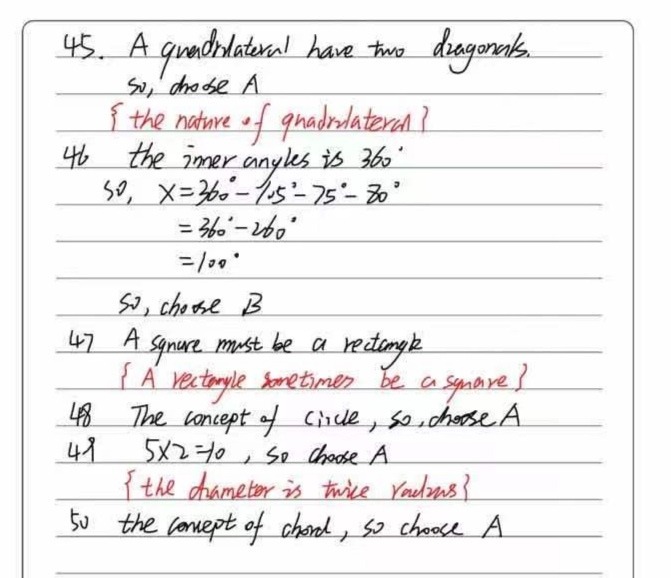 45. A quadrilateral have two diagonals.
so, choose A
{ the nature of quadrilateral }
46 the inner angles is 360°
so, x=360°-105°-75°-80°
=360°-260°
=100°
so, choose B
47 A square must be a rectangle
{ A rectangle sometimes be a square }
48 The concept of circle, so, choose A
49 5×2=10, so choose A
{ the diameter is twice radius }
50 the concept of chord, so choose A